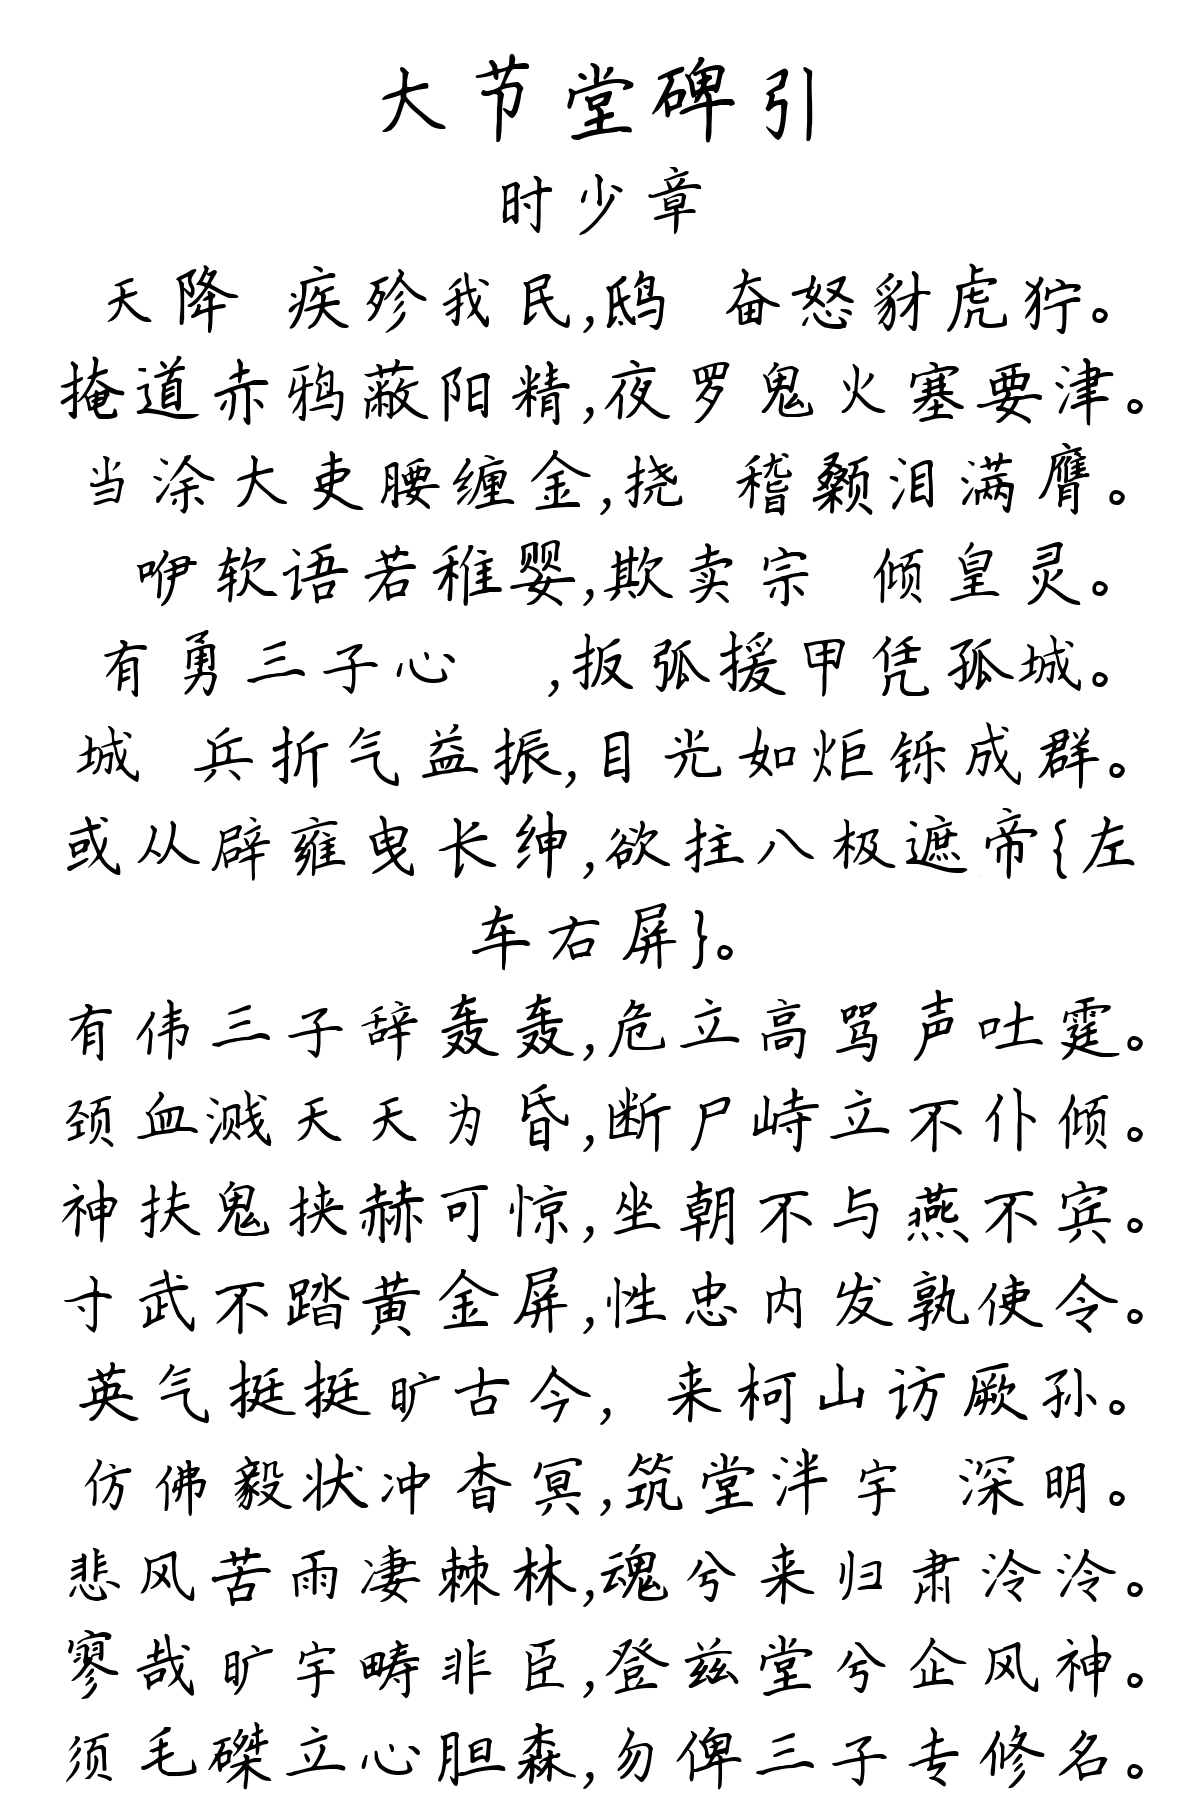 大节堂碑引
时少章
天降 疾殄我民,鸱 奋怒豺虎狞。
掩道赤鸦蔽阳精,夜罗鬼火塞要津。
当涂大吏腰缠金,挠 稽颡泪满膺。
咿软语若稚婴,欺卖宗 倾皇灵。
有勇三子心 ,扳弧援甲凭孤城。
城 兵折气益振,目光如炬铄成群。
或从辟雍曳长绅,欲拄八极遮帝{左
车右屏}。
有伟三子辞轰轰,危立高骂声吐霆。
颈血溅天天为昏,断尸峙立不仆倾。
神扶鬼挟赫可惊,坐朝不与燕不宾。
寸武不踏黄金屏,性忠内发孰使令。
英气挺挺旷古今, 来柯山访厥孙。
仿佛毅状冲杳冥,筑堂泮宇 深明。
悲风苦雨凄棘林,魂兮来归肃泠泠。
寥哉旷宇畴非臣,登兹堂兮企风神。
须毛磔立心胆森,勿俾三子专修名。